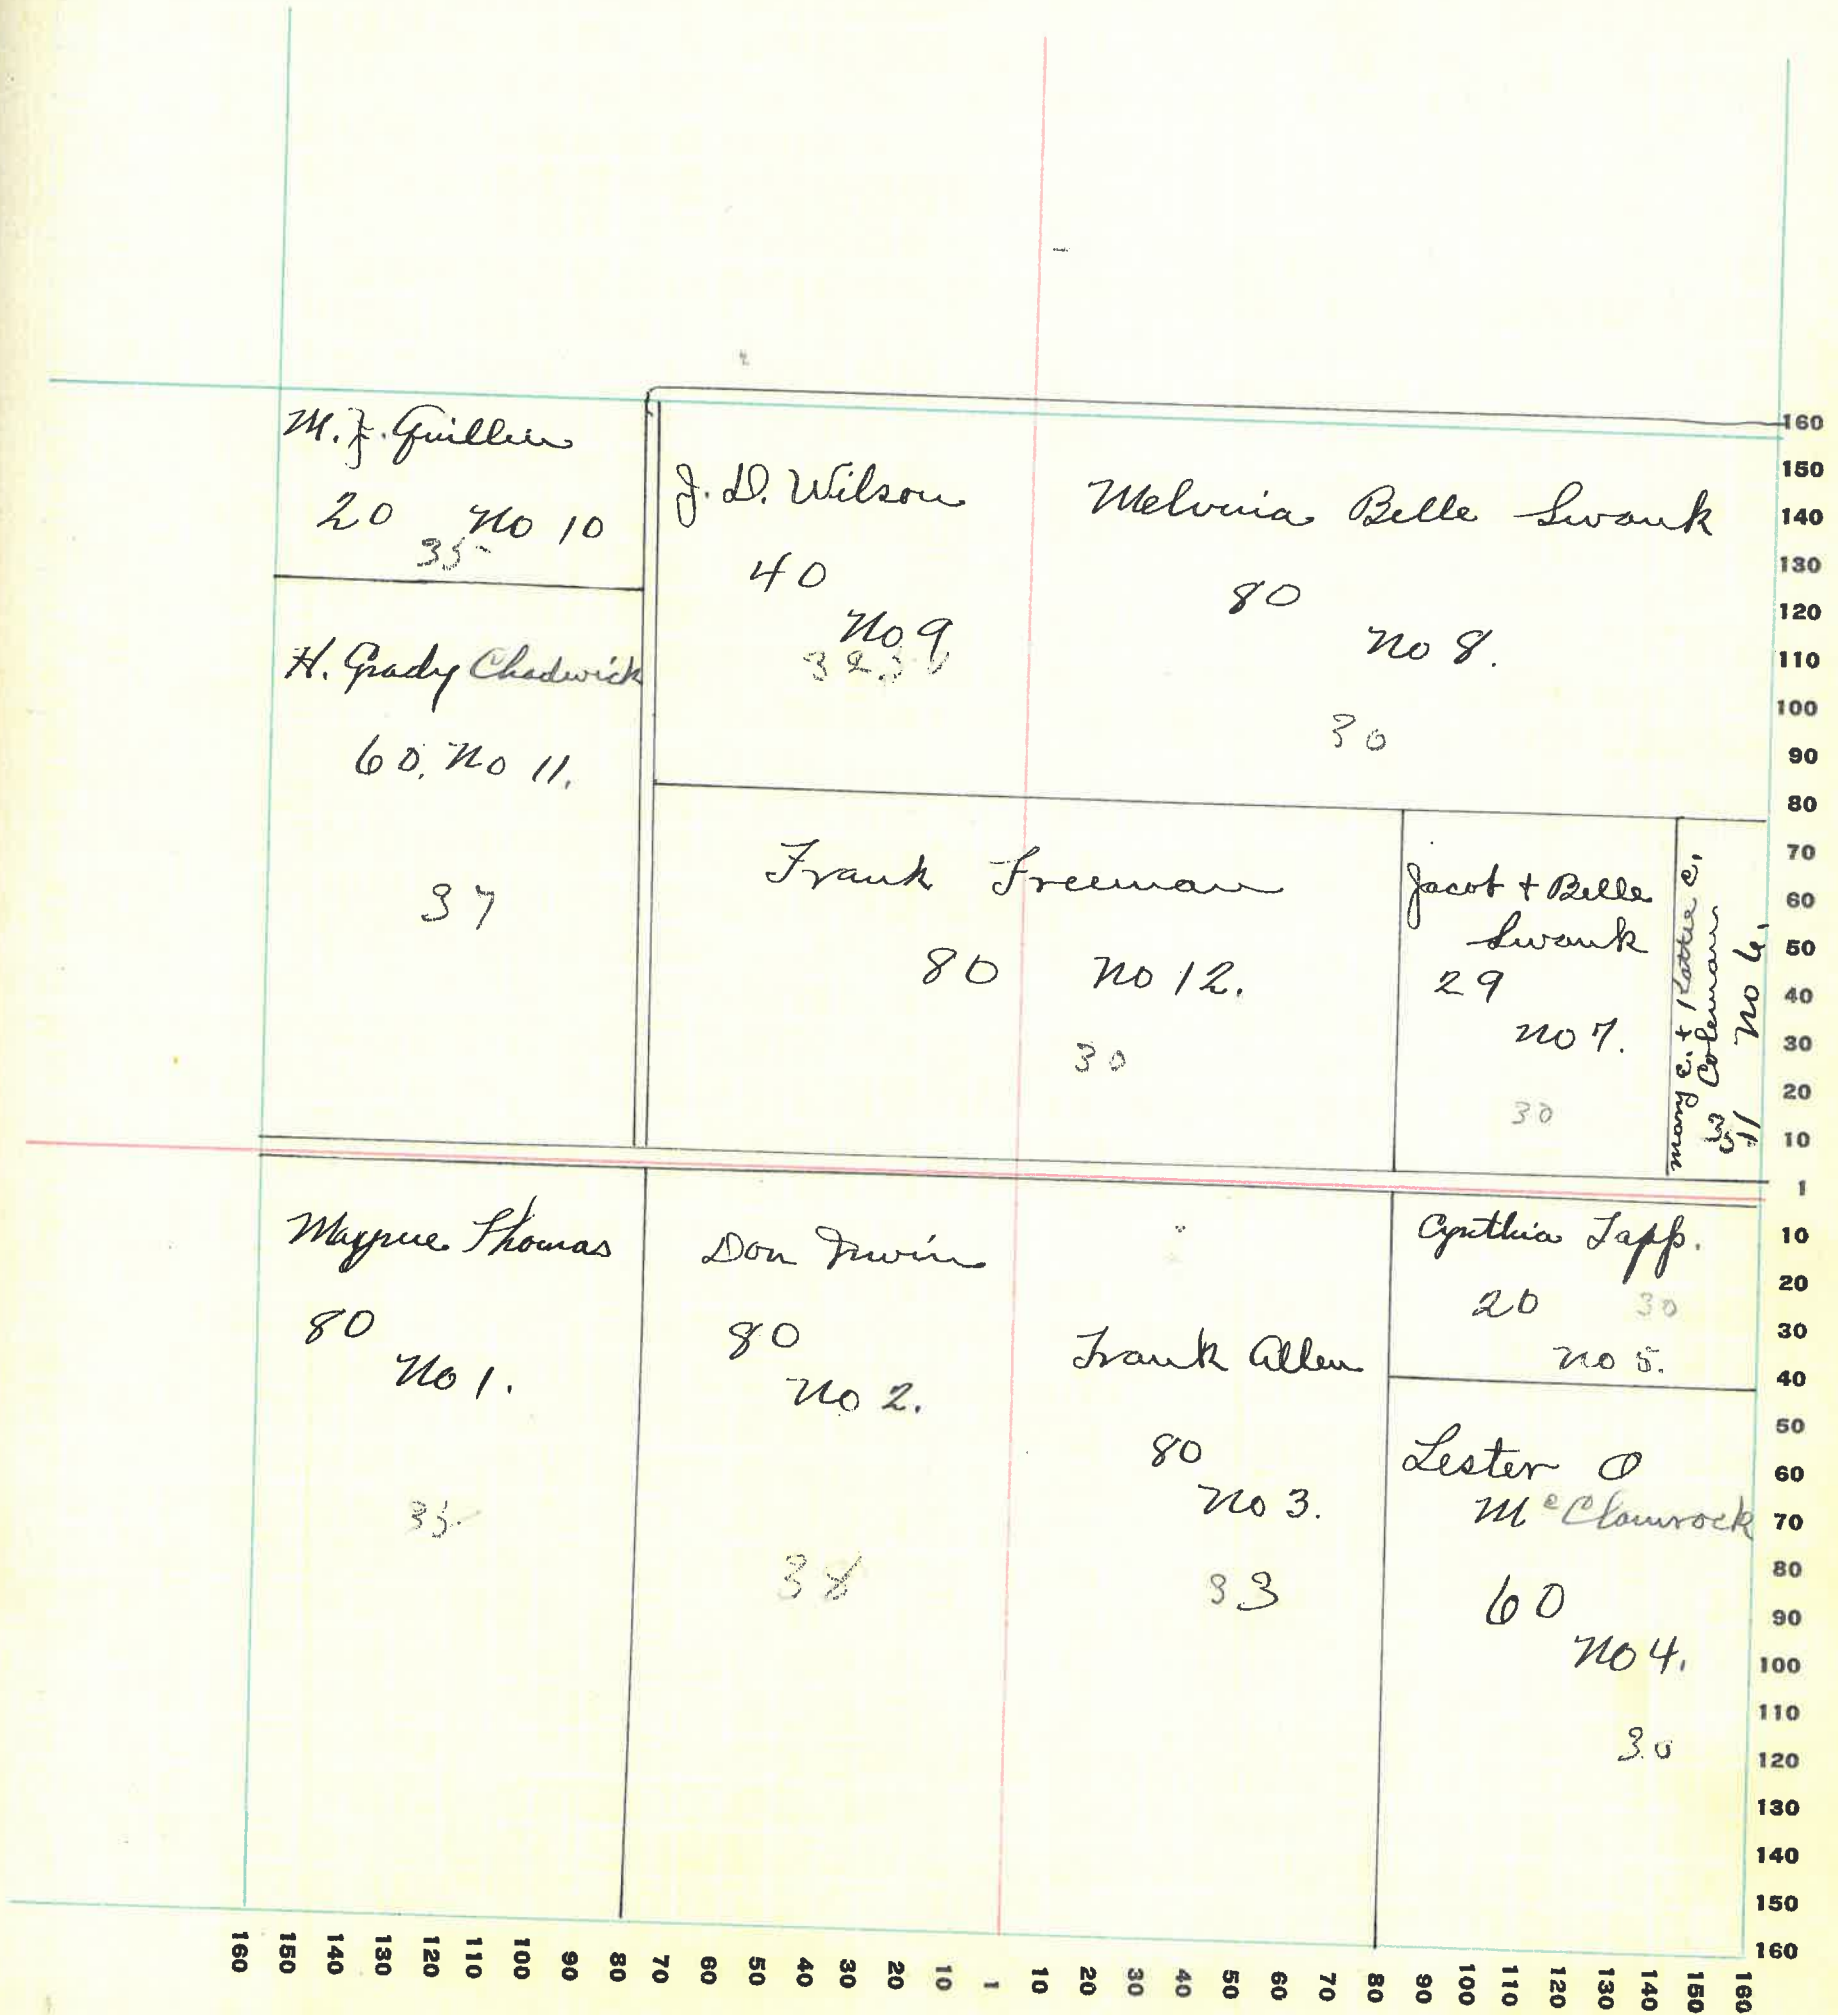 M. J. Guillin
20 No 10
35
H. Grady Chadwick
60. No 11.
37
J. D. Wilson
40
No 9
Melvinia Belle Swank
80
No 8.
30
Frank Freeman
80 No 12.
30
Jacob + Belle
Swank
29
No 7.
30
Mary E. + Kattie E.
Coleman
No 6.
35
11
Maggie Thomas
80
No 1.
35
Don Irwin
80
No 2.
38
Frank Allen
80
No 3.
33
Cynthia Tapp.
20 30
No 5.
Lester O
McClamrock
60
No 4.
30
160
150
140
130
120
110
100
90
80
70
60
50
40
30
20
10
1
10
20
30
40
50
60
70
80
90
100
110
120
130
140
150
160
160 150 140 130 120 110 100 90 80 70 60 50 40 30 20 10 1 10 20 30 40 50 60 70 80 90 100 110 120 130 140 150 160